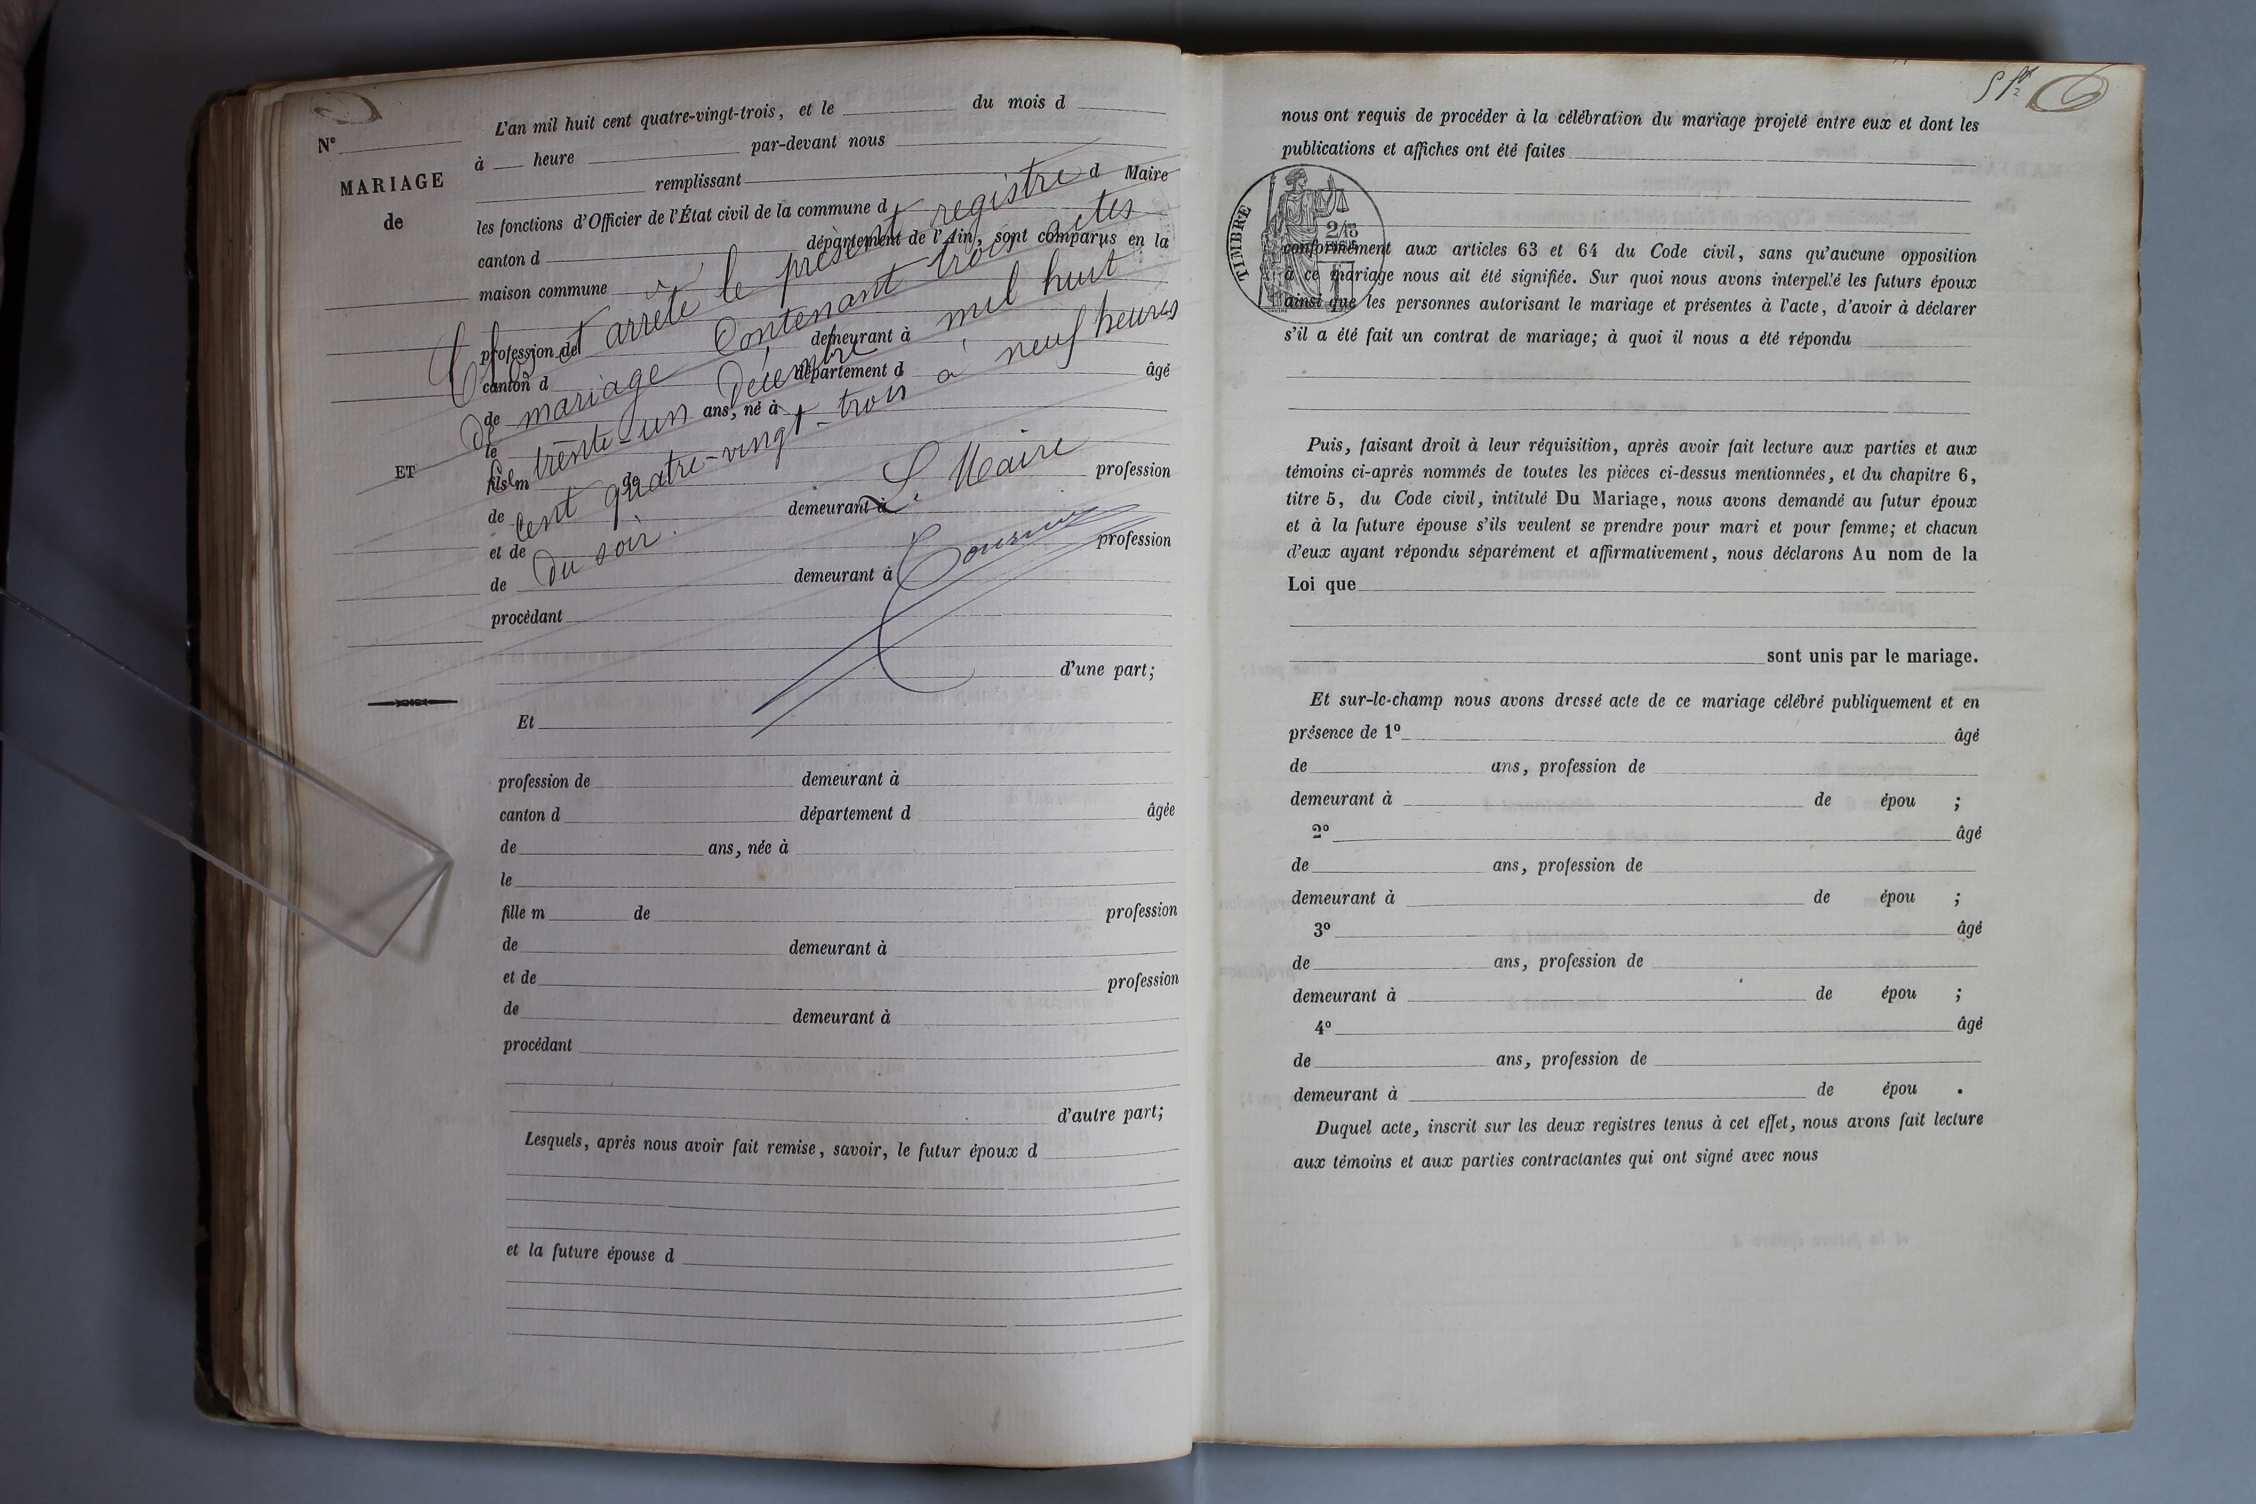 N°
MARIAGE
de
ET
L'an mil huit cent quatre-vingt-trois, et le du mois d
à heure par-devant nous
remplissant d Maire
les fonctions d'Officier de l'État civil de la commune d
canton d département de l'Ain, sont comparus en la
maison commune
profession de demeurant à
canton d département d âgé
de ans, né à
le
fils m de profession
de demeurant à
et de profession
de demeurant à
procédant
d'une part;
Clos et arrêté le présent registre
de mariage Contenant trois actes
le trente-un Décembre mil huit
cent quatre-vingt-trois à neuf heures
du soir.
Le Maire
Et
profession de demeurant à
canton d département d âgée
de ans, née à
le
fille m de profession
de demeurant à
et de profession
de demeurant à
procédant
d'autre part;
Lesquels, après nous avoir fait remise, savoir, le futur époux d
et la future épouse d
nous ont requis de procéder à la célébration du mariage projeté entre eux et dont les
publications et affiches ont été faites
TIMBRE
conformément aux articles 63 et 64 du Code civil, sans qu'aucune opposition
à ce mariage nous ait été signifiée. Sur quoi nous avons interpel.é les futurs époux
ainsi que les personnes autorisant le mariage et présentes à l'acte, d'avoir à déclarer
s'il a été fait un contrat de mariage; à quoi il nous a été répondu
Puis, faisant droit à leur réquisition, après avoir fait lecture aux parties et aux
témoins ci-après nommés de toutes les pièces ci-dessus mentionnées, et du chapitre 6,
titre 5, du Code civil, intitulé Du Mariage, nous avons demandé au futur époux
et à la future épouse s'ils veulent se prendre pour mari et pour femme; et chacun
d'eux ayant répondu séparément et affirmativement, nous déclarons Au nom de la
Loi que
sont unis par le mariage.
Et sur-le-champ nous avons dressé acte de ce mariage célébré publiquement et en
présence de 1° âgé
de ans, profession de
demeurant à de épou ;
2° âgé
de ans, profession de
demeurant à de épou ;
3° âgé
de ans, profession de
demeurant à de épou ;
4° âgé
de ans, profession de
demeurant à de épou .
Duquel acte, inscrit sur les deux registres tenus à cet effet, nous avons fait lecture
aux témoins et aux parties contractantes qui ont signé avec nous